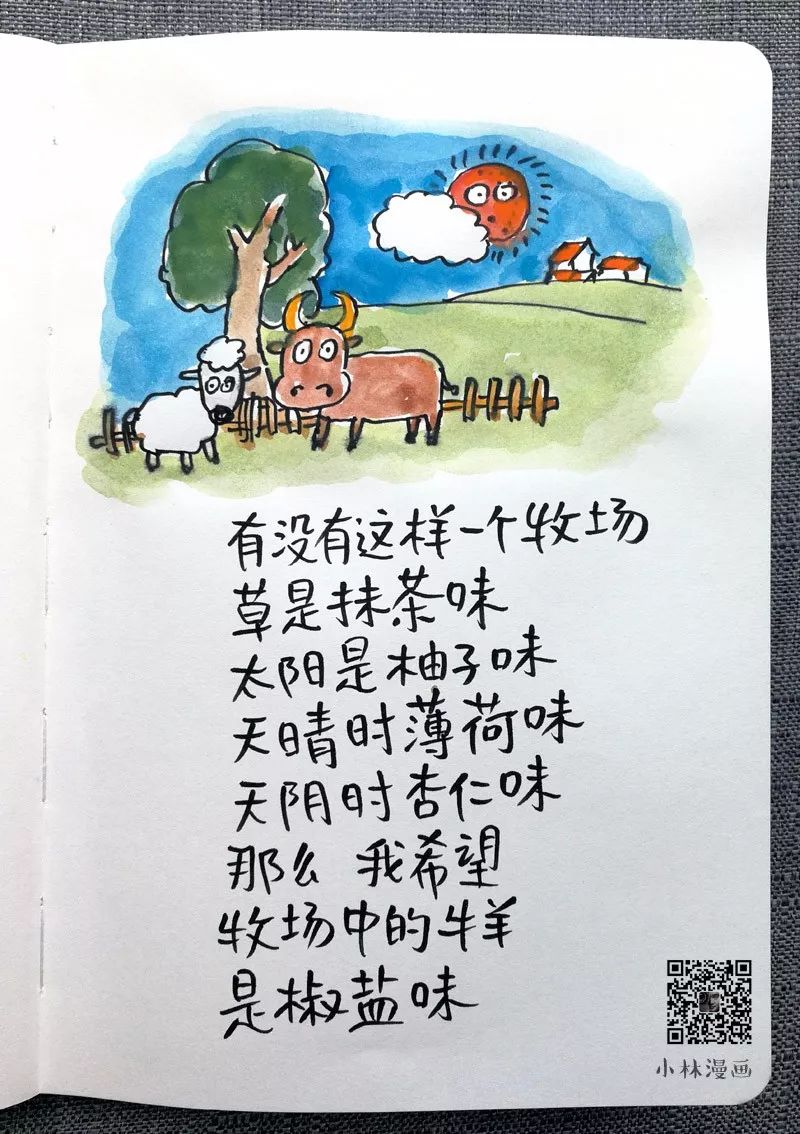 有没有这样一个牧场
草是抹茶味
太阳是柚子味
天晴时薄荷味
天阴时杏仁味
那么 我希望
牧场中的牛羊
是椒盐味
小林漫画